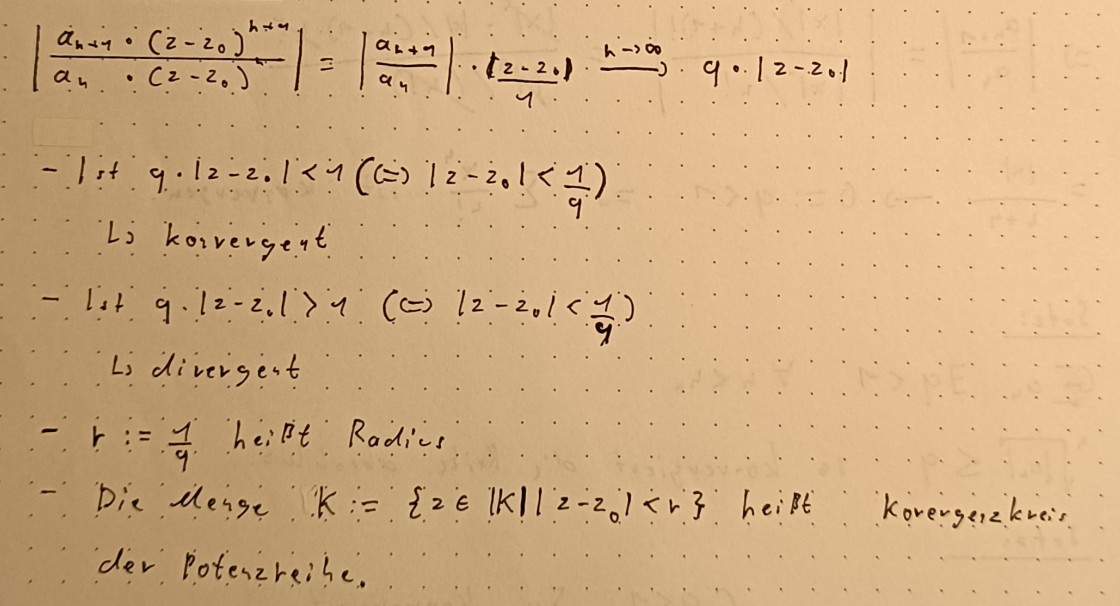 | a_{n+1} · (z - z_0)^{n+1} / a_n · (z - z_0) | = | a_{n+1} / a_n | · |z - z_0| / 1 —n→∞→ q · |z - z_0|
- Ist q · |z - z_0| < 1 (⇔ |z - z_0| < 1/q)
↳ konvergent
- Ist q · |z - z_0| > 1 (⇔ |z - z_0| < 1/q)
↳ divergent
- r := 1/q heißt Radius
- Die Menge K := {z ∈ 𝕂 | |z - z_0| < r} heißt Konvergenzkreis
der Potenzreihe.